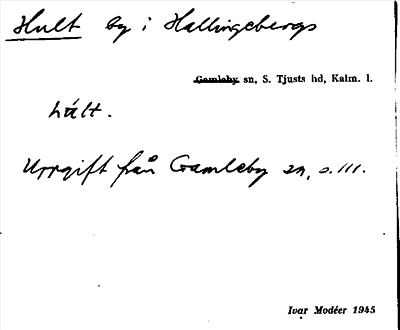 Hult by i Hallingebergs
Gamleby sn, S. Tjusts hd, Kalm. l.
hält.
Uppgift från Gamleby sn, s. 111.
Ivar Modéer 1945